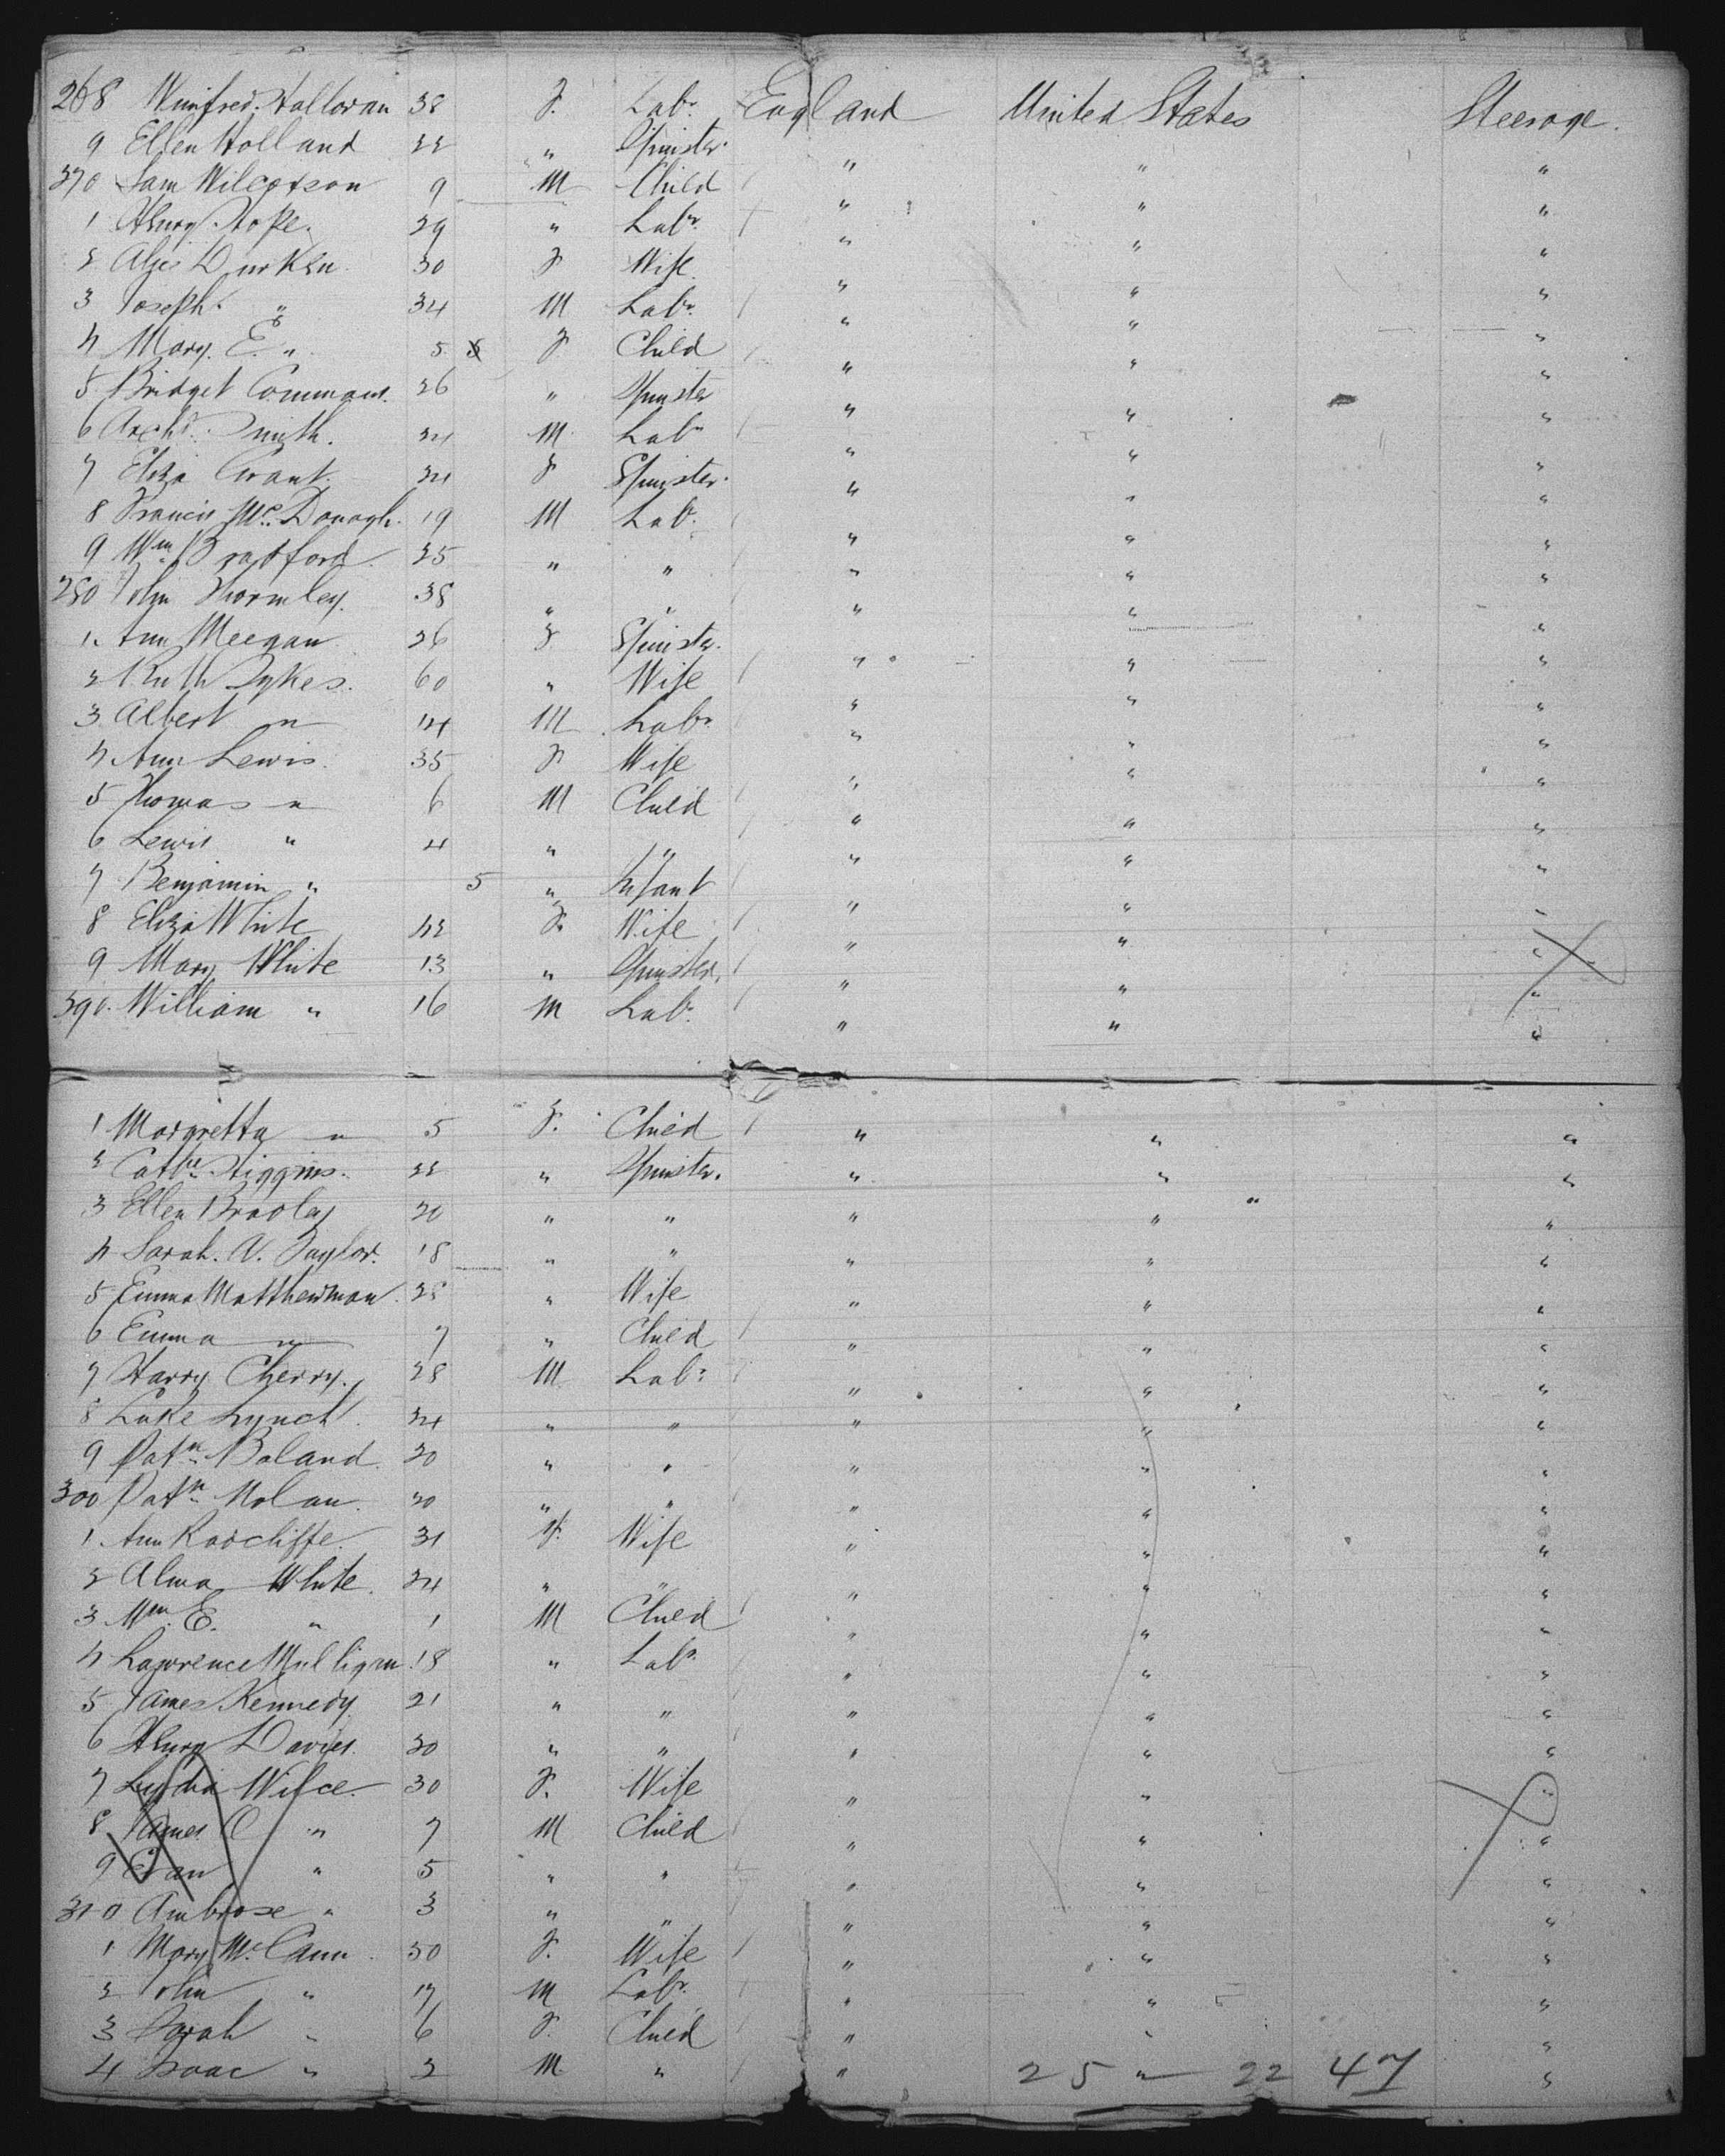 268 Winifred Halloran 38 F. Labr. England United States Steerage.
9 Ellen Holland 22 " Spinster. " " "
270 Sam Wilcoxson 9 M Child " " "
1 Henry Hope. 29 " Labr. " " "
2 Alice Durken. 30 F Wife " " "
3 Joseph " 34 M Labr. " " "
4 Mary. E. " 5 F Child " " "
5 Bridget Commons. 26 " Spinster " " "
6 Archd. Smith. 24 M Labr " " "
7 Eliza Grant. 24 F Spinster. " " "
8 Francis McDonagh. 19 M Labr. " " "
9 Wm Bradford. 25 " " " " "
280 John Thornley. 38 " " " " "
1. Ann Meegan 26 F Spinster. " " "
2 Ruth Sykes. 60 " Wife " " "
3 Albert " 14 M Labr. " " "
4 Ann Lewis. 35 F Wife " " "
5 Thomas " 6 M Child " " "
6 Lewis " 4 " " " " "
7 Benjamin " 5 " Infant " " "
8 Eliza White 42 F. Wife " " "
9 Mary White 13 " Spinster. " " "
290. William " 16 M Labr. " " "
1 Margretta " 5 F. Child " " "
2 Cathe. Higgins. 22 " Spinster. " " "
3 Ellen Bradley 20 " " " " "
4 Sarah. A. Taylor. 18 " " " " "
5 Emma Matthewman. 28 " Wife " " "
6 Emma " 7 " Child " " "
7 Harry Cherry. 28 M Labr. " " "
8 Luke Lynch. 24 " " " " "
9 Patk. Boland. 20 " " " " "
300 Patk. Nolan. 20 " " " " "
1. Ann Radcliffe. 31 F. Wife " " "
2 Alma White. 24 " " " " "
3 Wm. E. " 1 M Child " " "
4 Lawrence Mulligan. 18 " Labr. " " "
5 James Kennedy. 21 " " " " "
6 Henry Davies. 30 " " " " "
7 Lydia Wilce. 30 F. Wife " " "
8 James O " 7 M Child " " "
9 Evan " 5 " " " " "
310 Ambrose " 3 " " " " "
1 Mary McCann. 50 F. Wife " " "
2 John " 17 M Labr. " " "
3 Sarah " 6 F. Child " " "
4 Isaac " 2 M " " " "
25 22 47